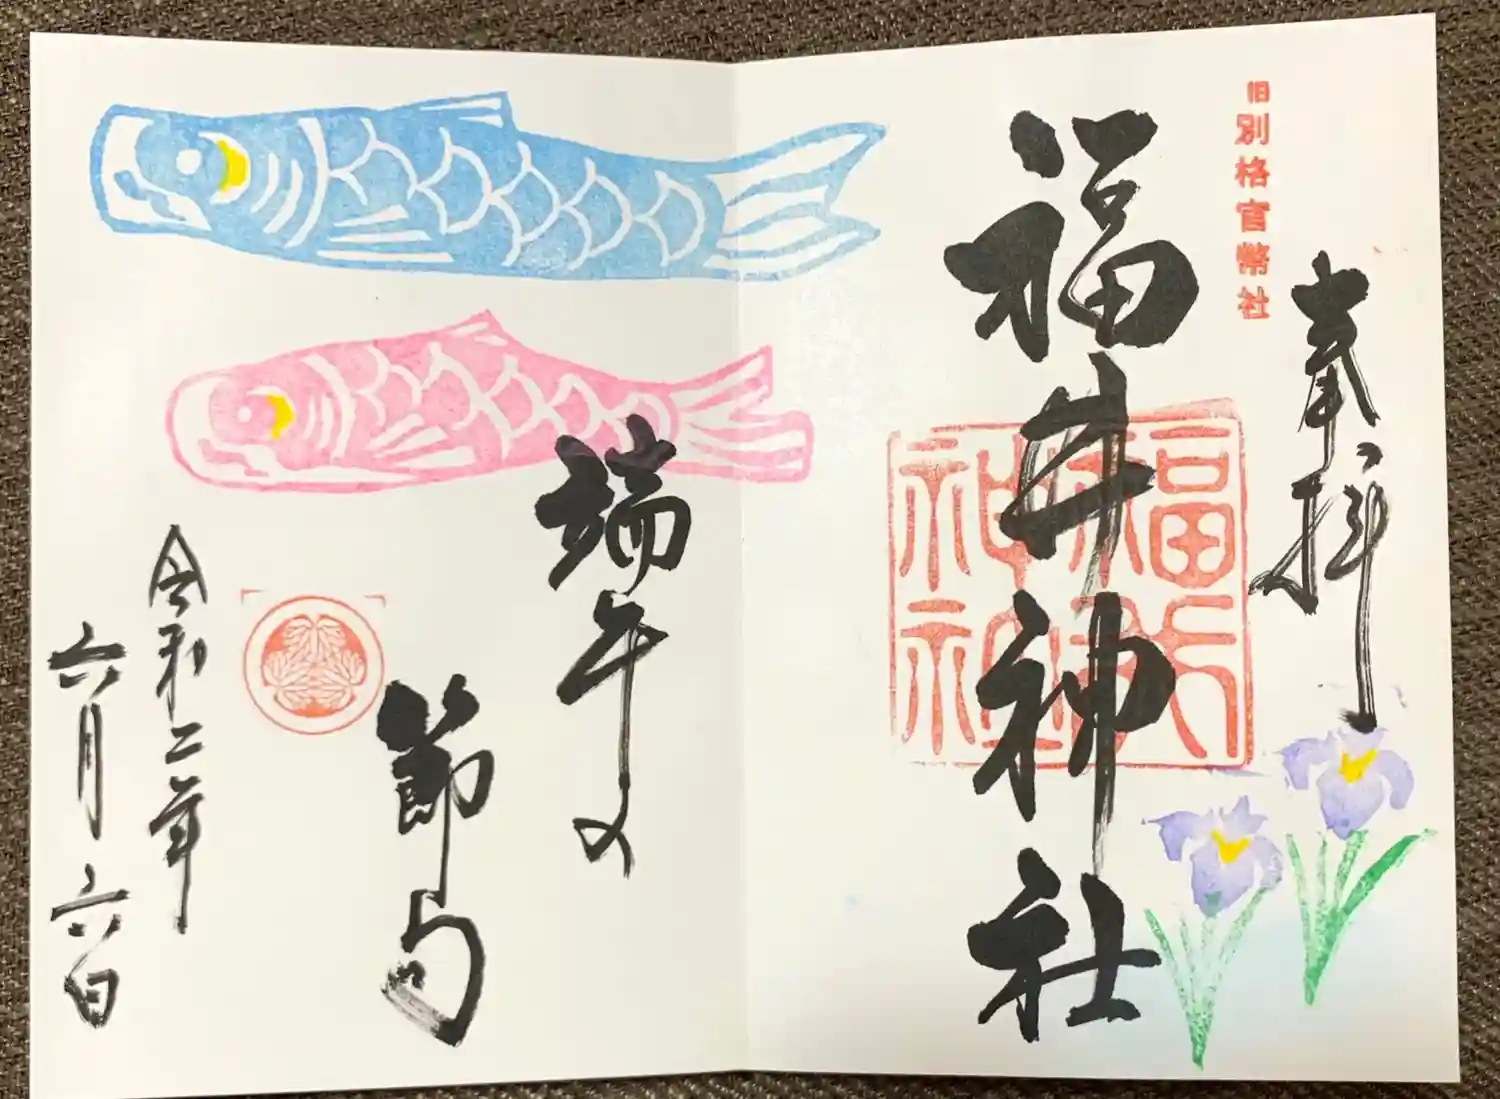 奉拝
旧別格官幣社
福井神社
福井神社
端午の
節句
令和二年
六月六日